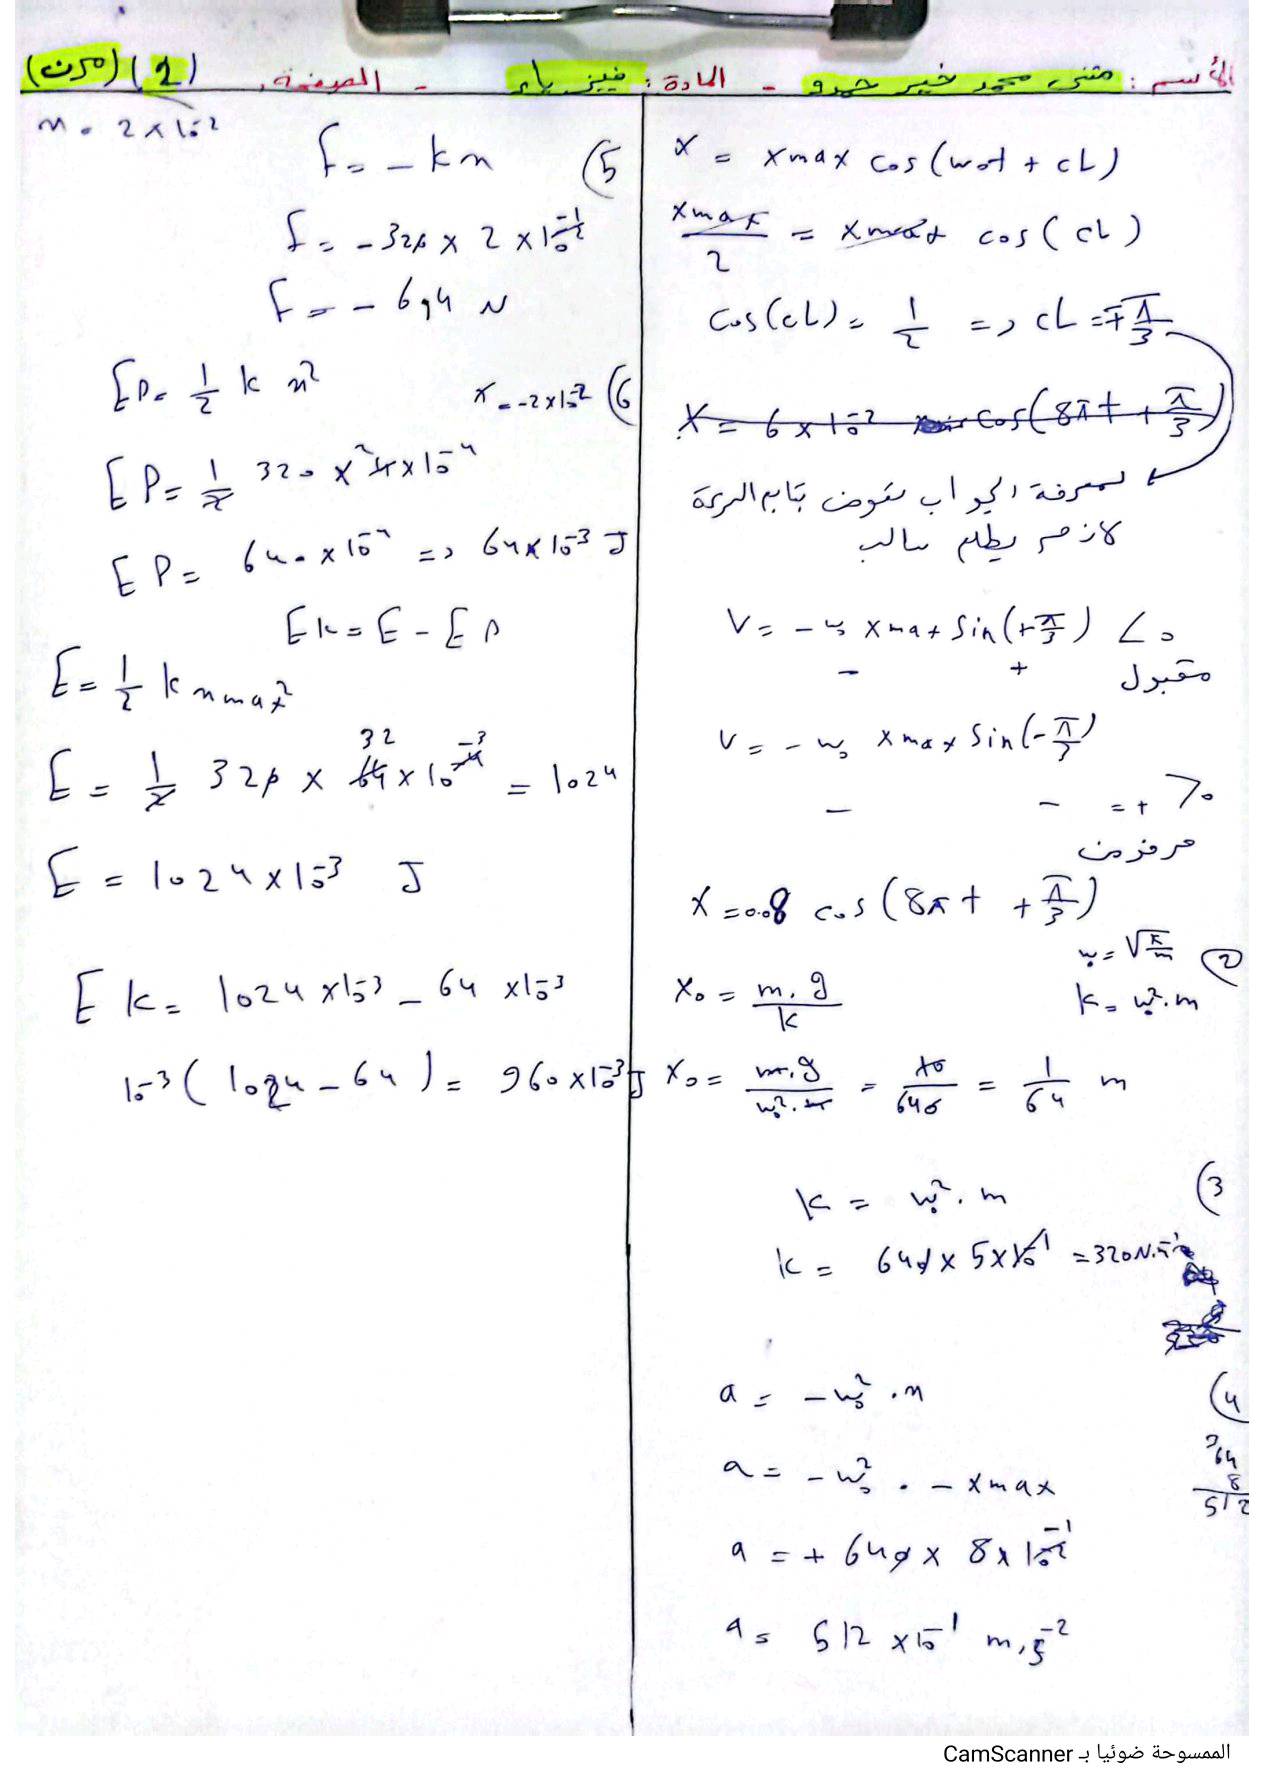 الأسم: مثنى محمد خير حمدو - المادة: فيزياء - الصفحة: (2) (مرن)
x = xmax cos(wot + cL)
xmax/2 = xmax cos(cL)
cos(cL) = 1/2 => cL = ∓π/3
X = 6 x 10^-2 cos(8πt + π/3)
لمعرفة الجواب نعوض بتابع السرعة
لازم يطلع سالب
V = - w0 xmax sin(+π/3) < 0
- +
مقبول
V = - w0 xmax sin(-π/3)
- - = + > 0
مرفوض
X = 0.08 cos(8πt + π/3)
2) w0 = √(k/m)
k = w0². m
X0 = m.g/k
X0 = m.g/w0².m = 10/640 = 1/64 m
3) k = w0². m
k = 640 x 5 x 10^-1 = 320 N.m^-1
4) a = - w0² . x
a = - w0² . - xmax
64
8
512
a = + 640 x 8 x 10^-2 -1
a = 512 x 10^-1 m.s^-2
x = 2 x 10^-2
5) F = - k x
F = - 320 x 2 x 10^-2 -1
F = - 6,4 N
6) x = -2 x 10^-2
EP = 1/2 k x²
EP = 1/2 320 x 4 2 x 10^-4
EP = 640 x 10^-4 => 64 x 10^-3 J
Ek = E - EP
E = 1/2 k xmax²
E = 1/2 320 x 64 32 x 10^-4 -3 = 1024
E = 1024 x 10^-3 J
Ek = 1024 x 10^-3 - 64 x 10^-3
10^-3 (1024 - 64) = 960 x 10^-3 J
الممسوحة ضوئيا بـ CamScanner